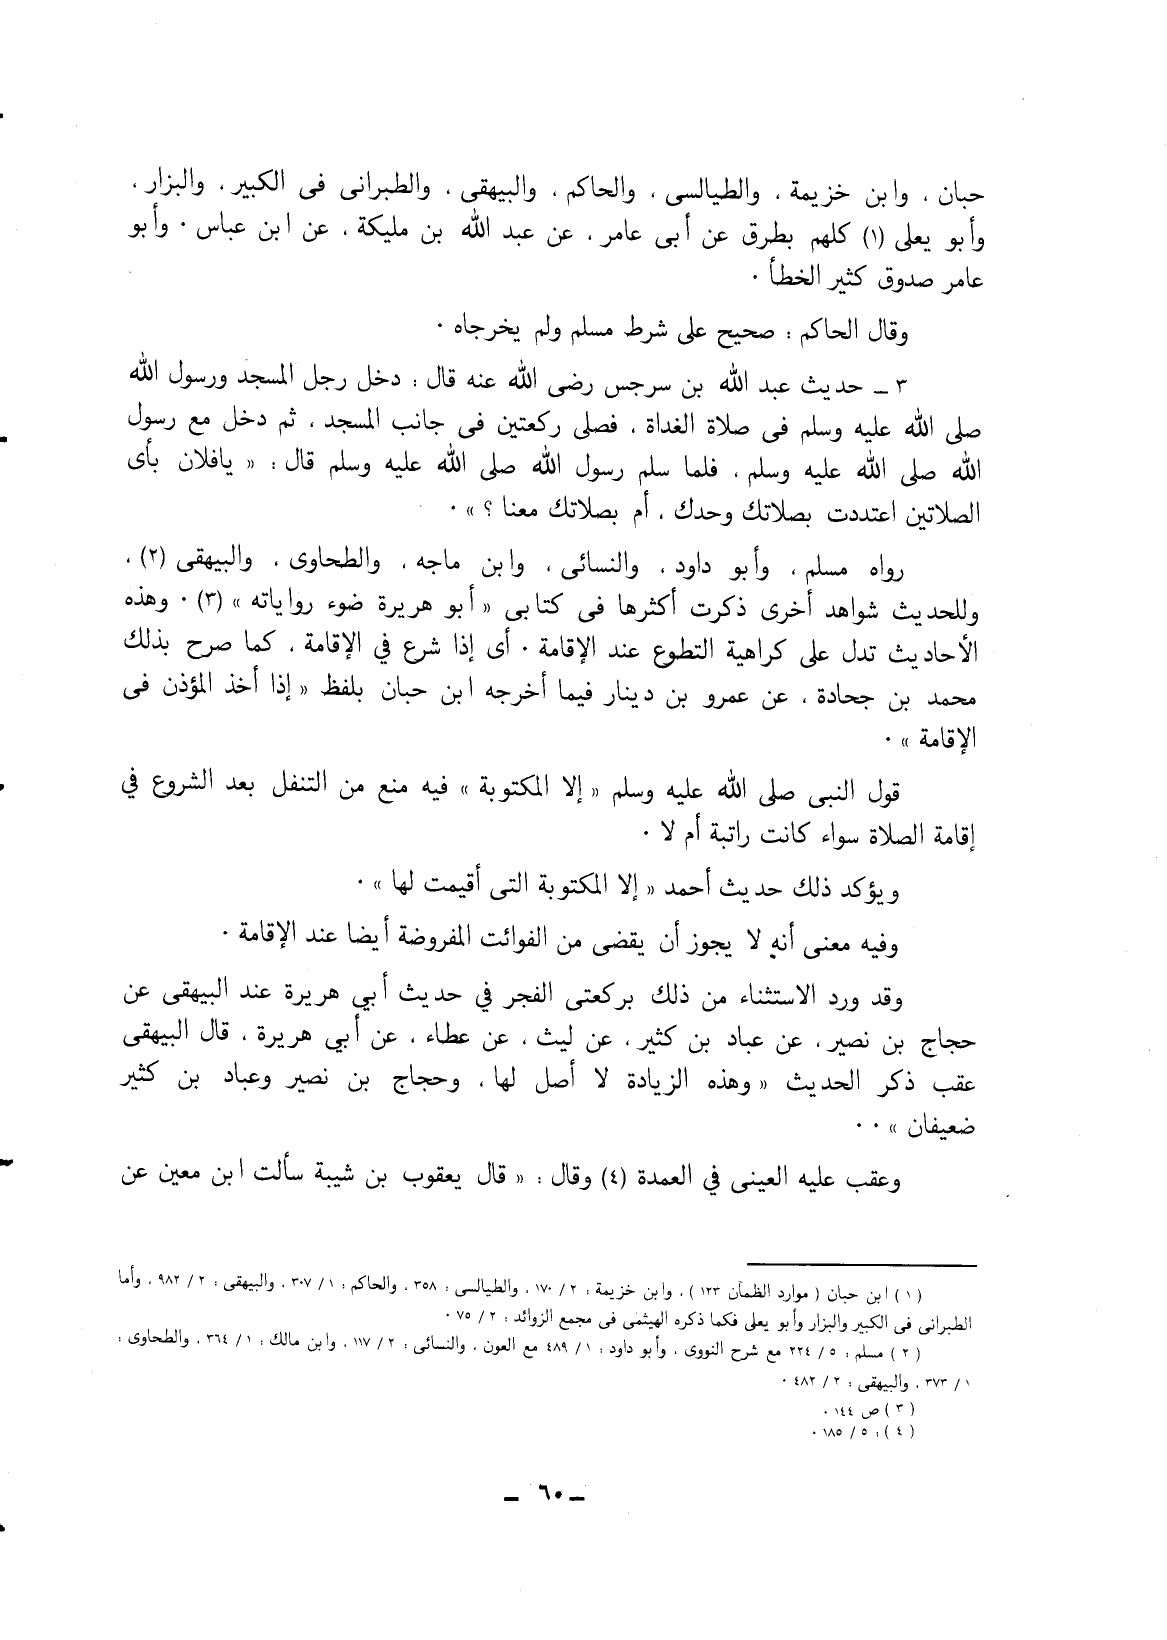 حبان ، وابن خزيمة ، والطيالسى ، والحاكم ، والبيهقى ، والطبرانى فى الكبير ، والبزار ،
وأبو يعلى (١) كلهم بطرق عن أبى عامر ، عن عبد الله بن مليكة ، عن ابن عباس ٠ وأبو
عامر صدوق كثير الخطأ ٠
وقال الحاكم : صحيح على شرط مسلم ولم يخرجاه ٠
٣ ـ حديث عبد الله بن سرجس رضى الله عنه قال : دخل رجل المسجد ورسول الله
صلى الله عليه وسلم فى صلاة الغداة ، فصلى ركعتين فى جانب المسجد ، ثم دخل مع رسول
الله صلى الله عليه وسلم ، فلما سلم رسول الله صلى الله عليه وسلم قال : « يافلان بأى
الصلاتين اعتددت بصلاتك وحدك ، أم بصلاتك معنا ؟ » ٠
رواه مسلم ، وأبو داود ، والنسائى ، وابن ماجه ، والطحاوى ، والبيهقى (٢) ،
وللحديث شواهد أخرى ذكرت أكثرها فى كتابى « أبو هريرة ضوء رواياته » (٣) ٠ وهذه
الأحاديث تدل على كراهية التطوع عند الإقامة ٠ أى إذا شرع في الإقامة ، كما صرح بذلك
محمد بن جحادة ، عن عمرو بن دينار فيما أخرجه ابن حبان بلفظ « إذا أخذ المؤذن فى
الإقامة » ٠
قول النبى صلى الله عليه وسلم « إلا المكتوبة » فيه منع من التنفل بعد الشروع في
إقامة الصلاة سواء كانت راتبة أم لا ٠
ويؤكد ذلك حديث أحمد « إلا المكتوبة التى أقيمت لها » ٠
وفيه معنى أنه لا يجوز أن يقضى من الفوائت المفروضة أيضا عند الإقامة ٠
وقد ورد الاستثناء من ذلك بركعتى الفجر في حديث أبي هريرة عند البيهقى عن
حجاج بن نصير ، عن عباد بن كثير ، عن ليث ، عن عطاء ، عن أبي هريرة ، قال البيهقى
عقب ذكر الحديث « وهذه الزيادة لا أصل لها ، وحجاج بن نصير وعباد بن كثير
ضعيفان » ٠ ٠
وعقب عليه العينى في العمدة (٤) وقال : « قال يعقوب بن شيبة سألت ابن معين عن
( ١ ) ابن حبان ( موارد الظمآن ١٢٣ ) ، وابن خزيمة : ٢ / ١٧٠ ، والطيالسى : ٣٥٨ ، والحاكم : ١ / ٣٠٧ ، والبيهقى : ٢ / ٩٨٢ ، وأما
الطبرانى فى الكبير والبزار وأبو يعلى فكما ذكره الهيثمى فى مجمع الزوائد : ٢ / ٧٥ ٠
( ٢ ) مسلم : ٥ / ٢٢٤ مع شرح النووى ، وأبو داود : ١ / ٤٨٩ مع العون ، والنسائى : ٢ / ١١٧ ، وابن مالك : ١ / ٣٦٤ ، والطحاوى :
١ / ٣٧٣ ، والبيهقى : ٢ / ٤٨٢ ٠
( ٣ ) ص ١٤٤ ٠
( ٤ ) : ٥ / ١٨٥ ٠
ـ ٦٠ ـ